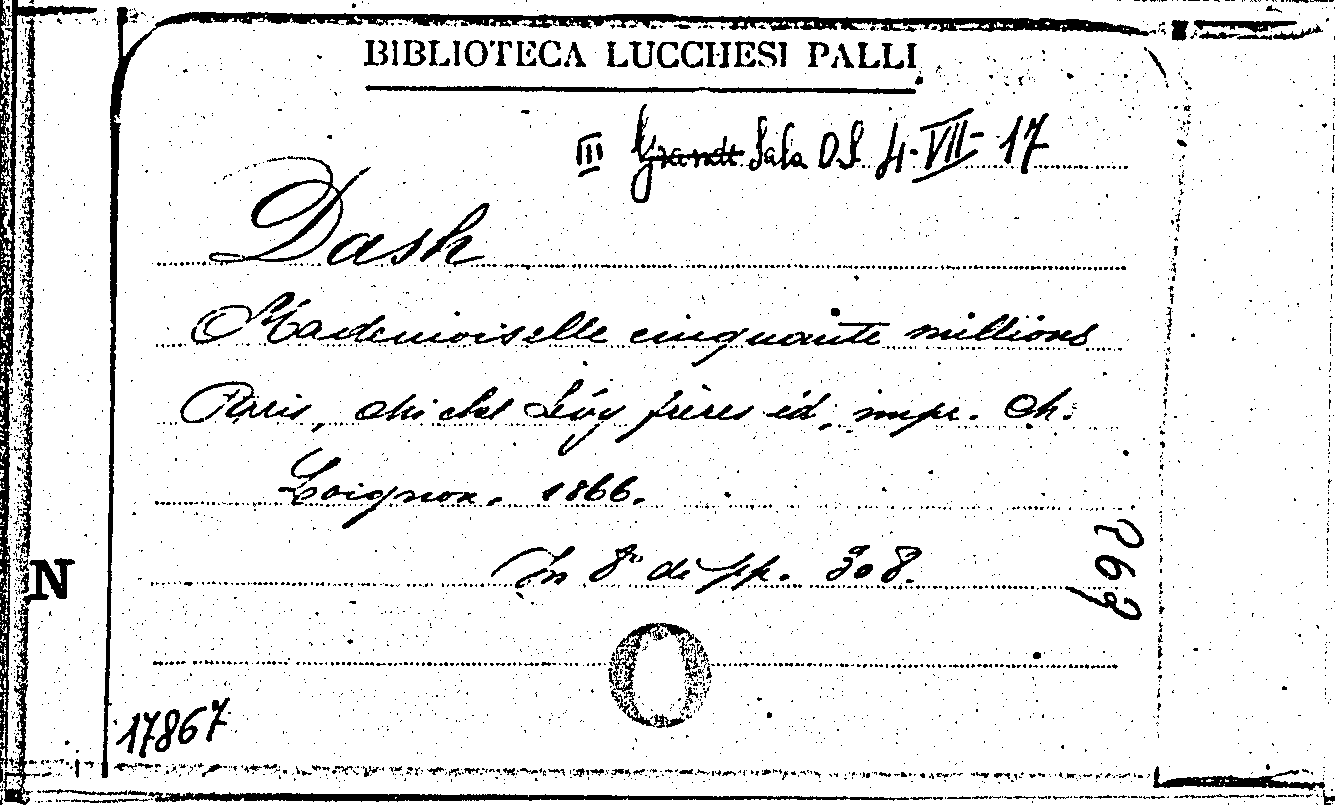 BIBLIOTECA LUCCHESI PALLI
III Grande Sala D.S. 4-VII-17
Dash
Mademoiselle cinquante millions
Paris, Michel Lévy frères éd, impr. Ch.
Loignon. 1866.
In 8° di pp. 308.
N
17867